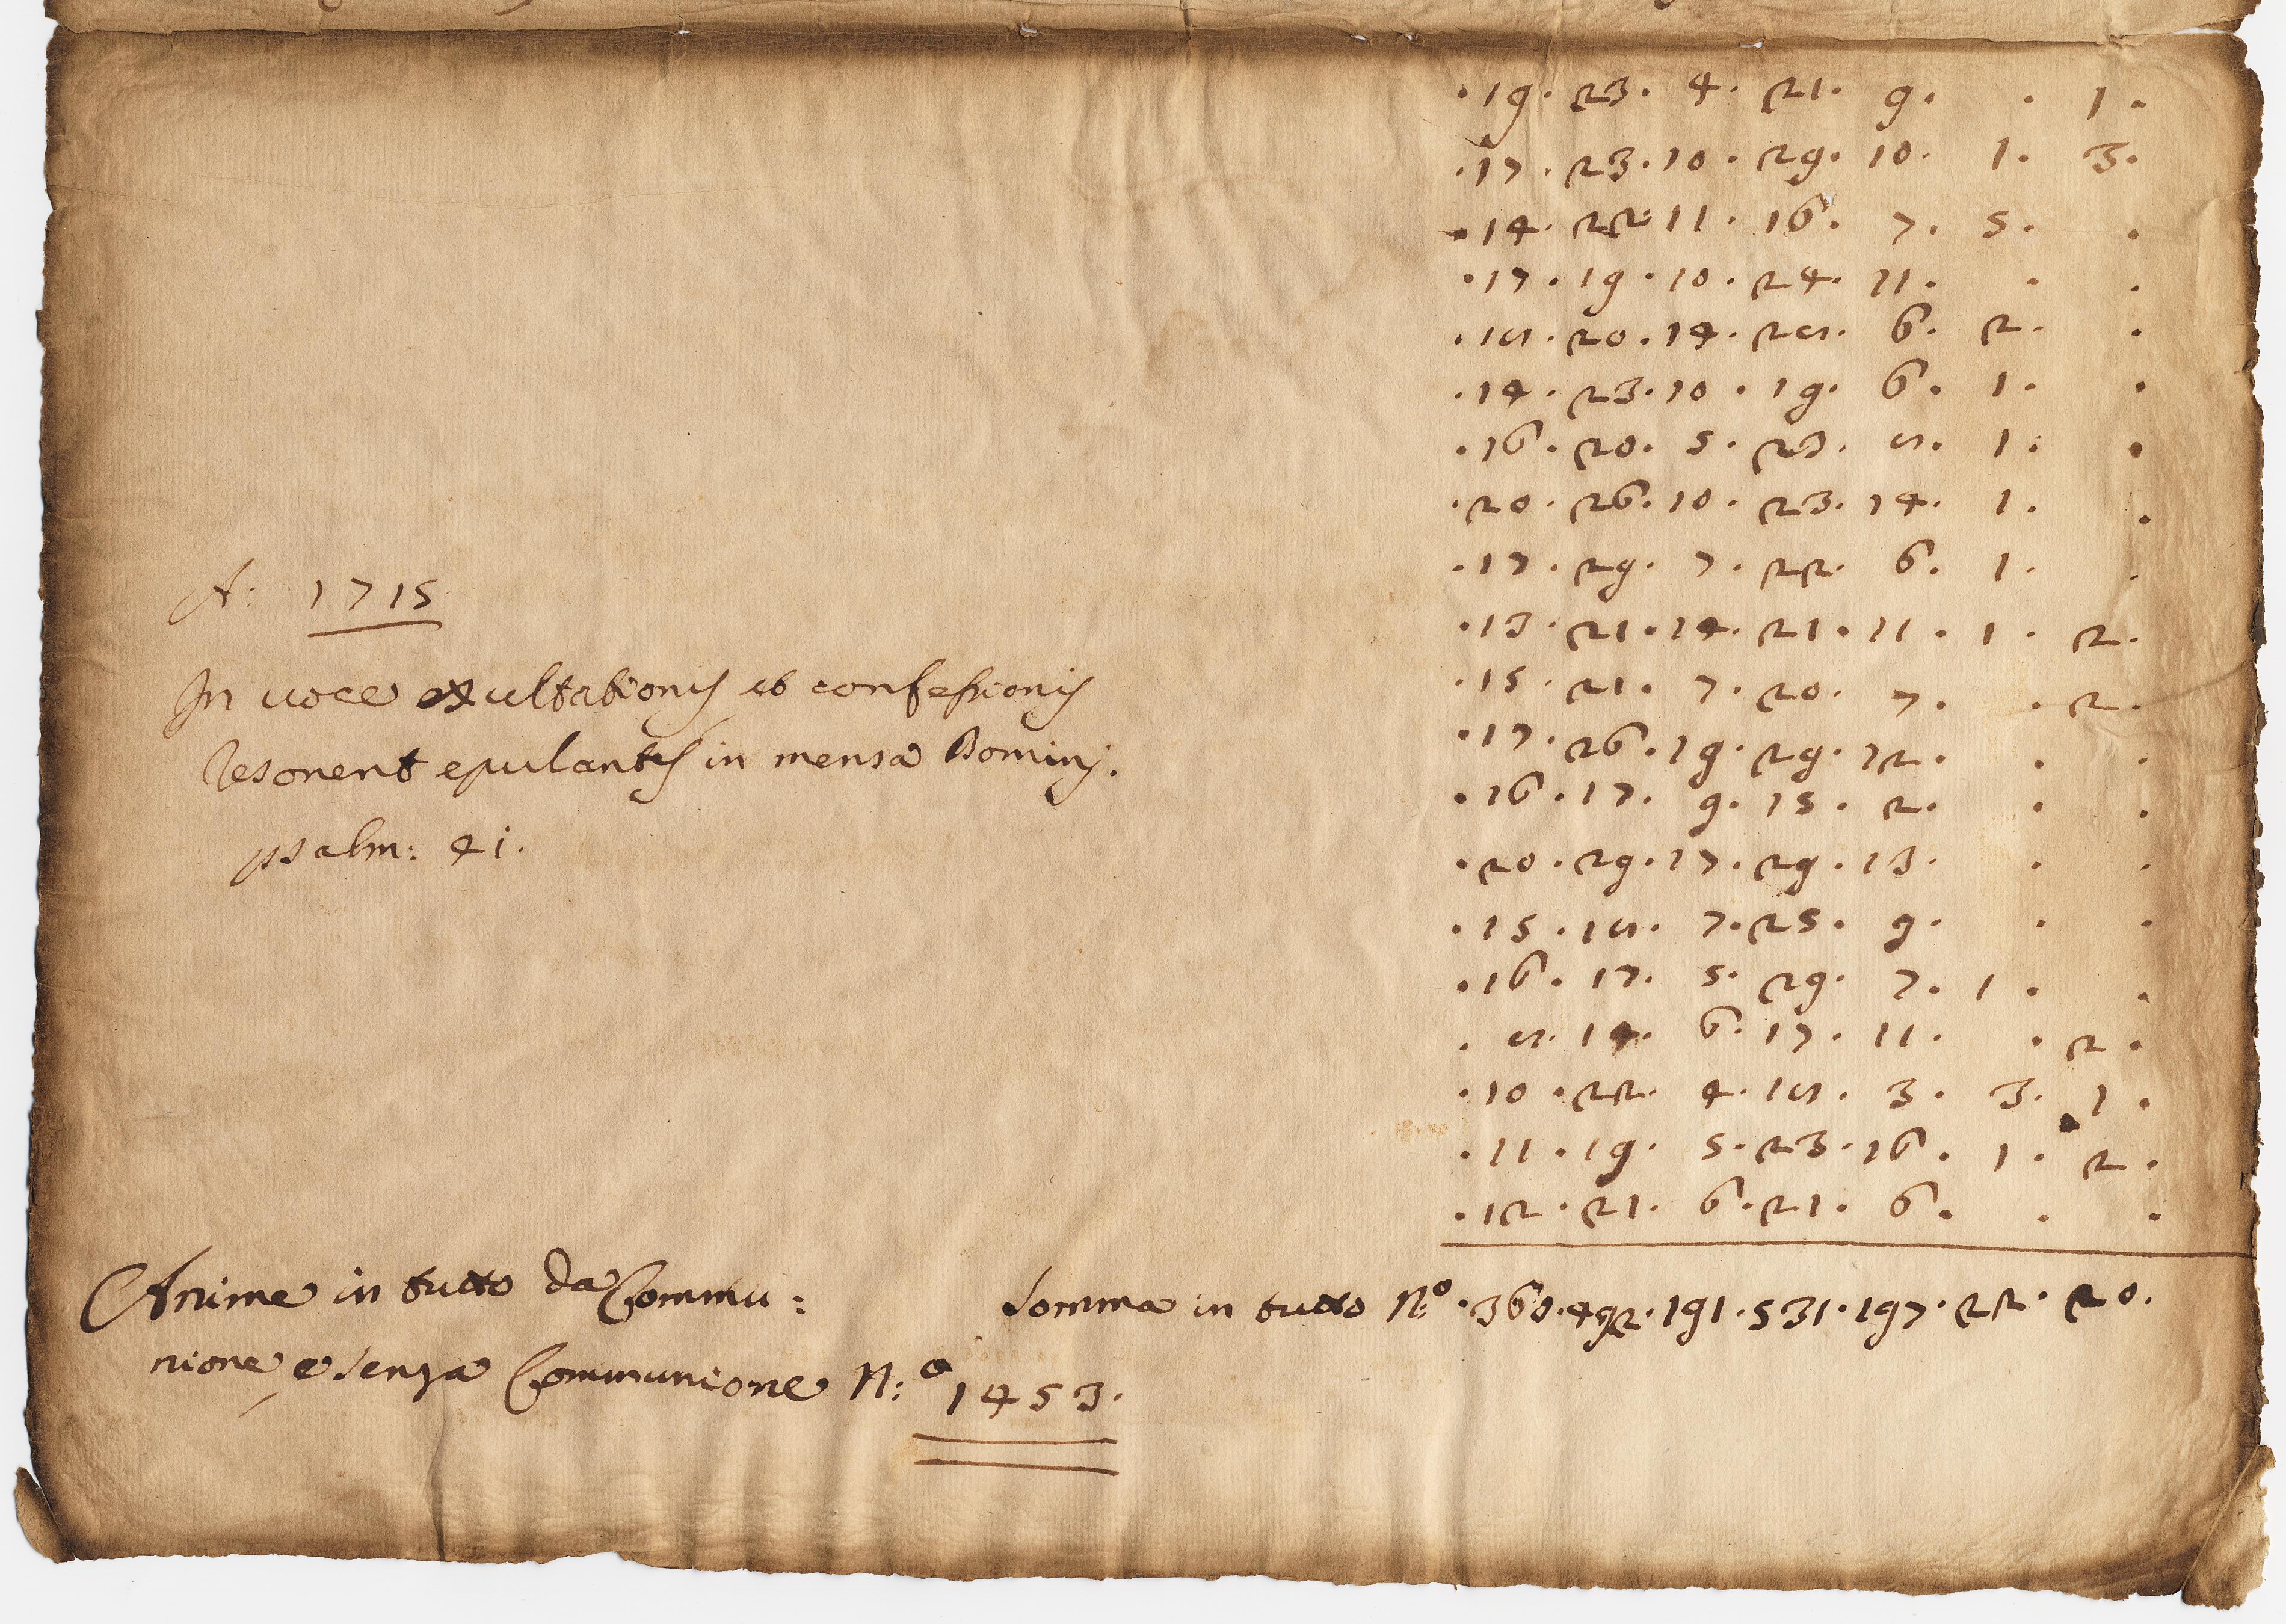 A: 1715
In uoce exultationis et confessionis
resonent epulantes in mensa Domini.
psalm: 41.
. 19 . 23 . 4 . 21 . 9 . . 1 .
. 17 . 23 . 10 . 29 . 10 . 1 . 3 .
. 14 . 22 . 11 . 16 . 7 . 5 . .
. 17 . 19 . 10 . 24 . 11 . . .
. 18 . 20 . 14 . 28 . 6 . 2 . .
. 14 . 23 . 10 . 19 . 6 . 1 . .
. 16 . 20 . 5 . 23 . 8 . 1 . .
. 20 . 26 . 10 . 23 . 14 . 1 . .
. 17 . 29 . 7 . 22 . 6 . 1 . .
. 13 . 21 . 14 . 21 . 11 . 1 . 2 .
. 15 . 21 . 7 . 20 . 7 . . 2 .
. 17 . 26 . 19 . 29 . 12 . . .
. 16 . 17 . 9 . 15 . 2 . . .
. 20 . 29 . 17 . 29 . 13 . . .
. 15 . 18 . 7 . 25 . 9 . . .
. 16 . 17 . 5 . 29 . 7 . 1 . .
. 8 . 14 . 6 . 17 . 11 . . 2 .
. 10 . 22 . 4 . 18 . 3 . 3 . 1 .
. 11 . 19 . 5 . 23 . 16 . 1 . 2 .
. 12 . 21 . 6 . 21 . 6 . . .
Somma in tutto N:o . 360 . 492 . 191 . 531 . 197 . 22 . 20 .
Anime in tutto da Commu:
nione, e senza Communione N:o 1453.